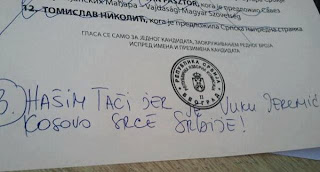 Мађара – Vajdasági Magyar Szövetség
12. ТОМИСЛАВ НИКОЛИЋ, кога је предложила Српска напредна странка
ГЛАСА СЕ САМО ЗА ЈЕДНОГ КАНДИДАТА, ЗАОКРУЖИВАЊЕМ РЕДНОГ БРОЈА
ИСПРЕД ИМЕНА И ПРЕЗИМЕНА КАНДИДАТА
РЕПУБЛИКА СРБИЈА
БЕОГРАД
3. HAŠIM TAČI JER JE VUKU JEREMIĆ
COSOVO SRCE SRBIJE!